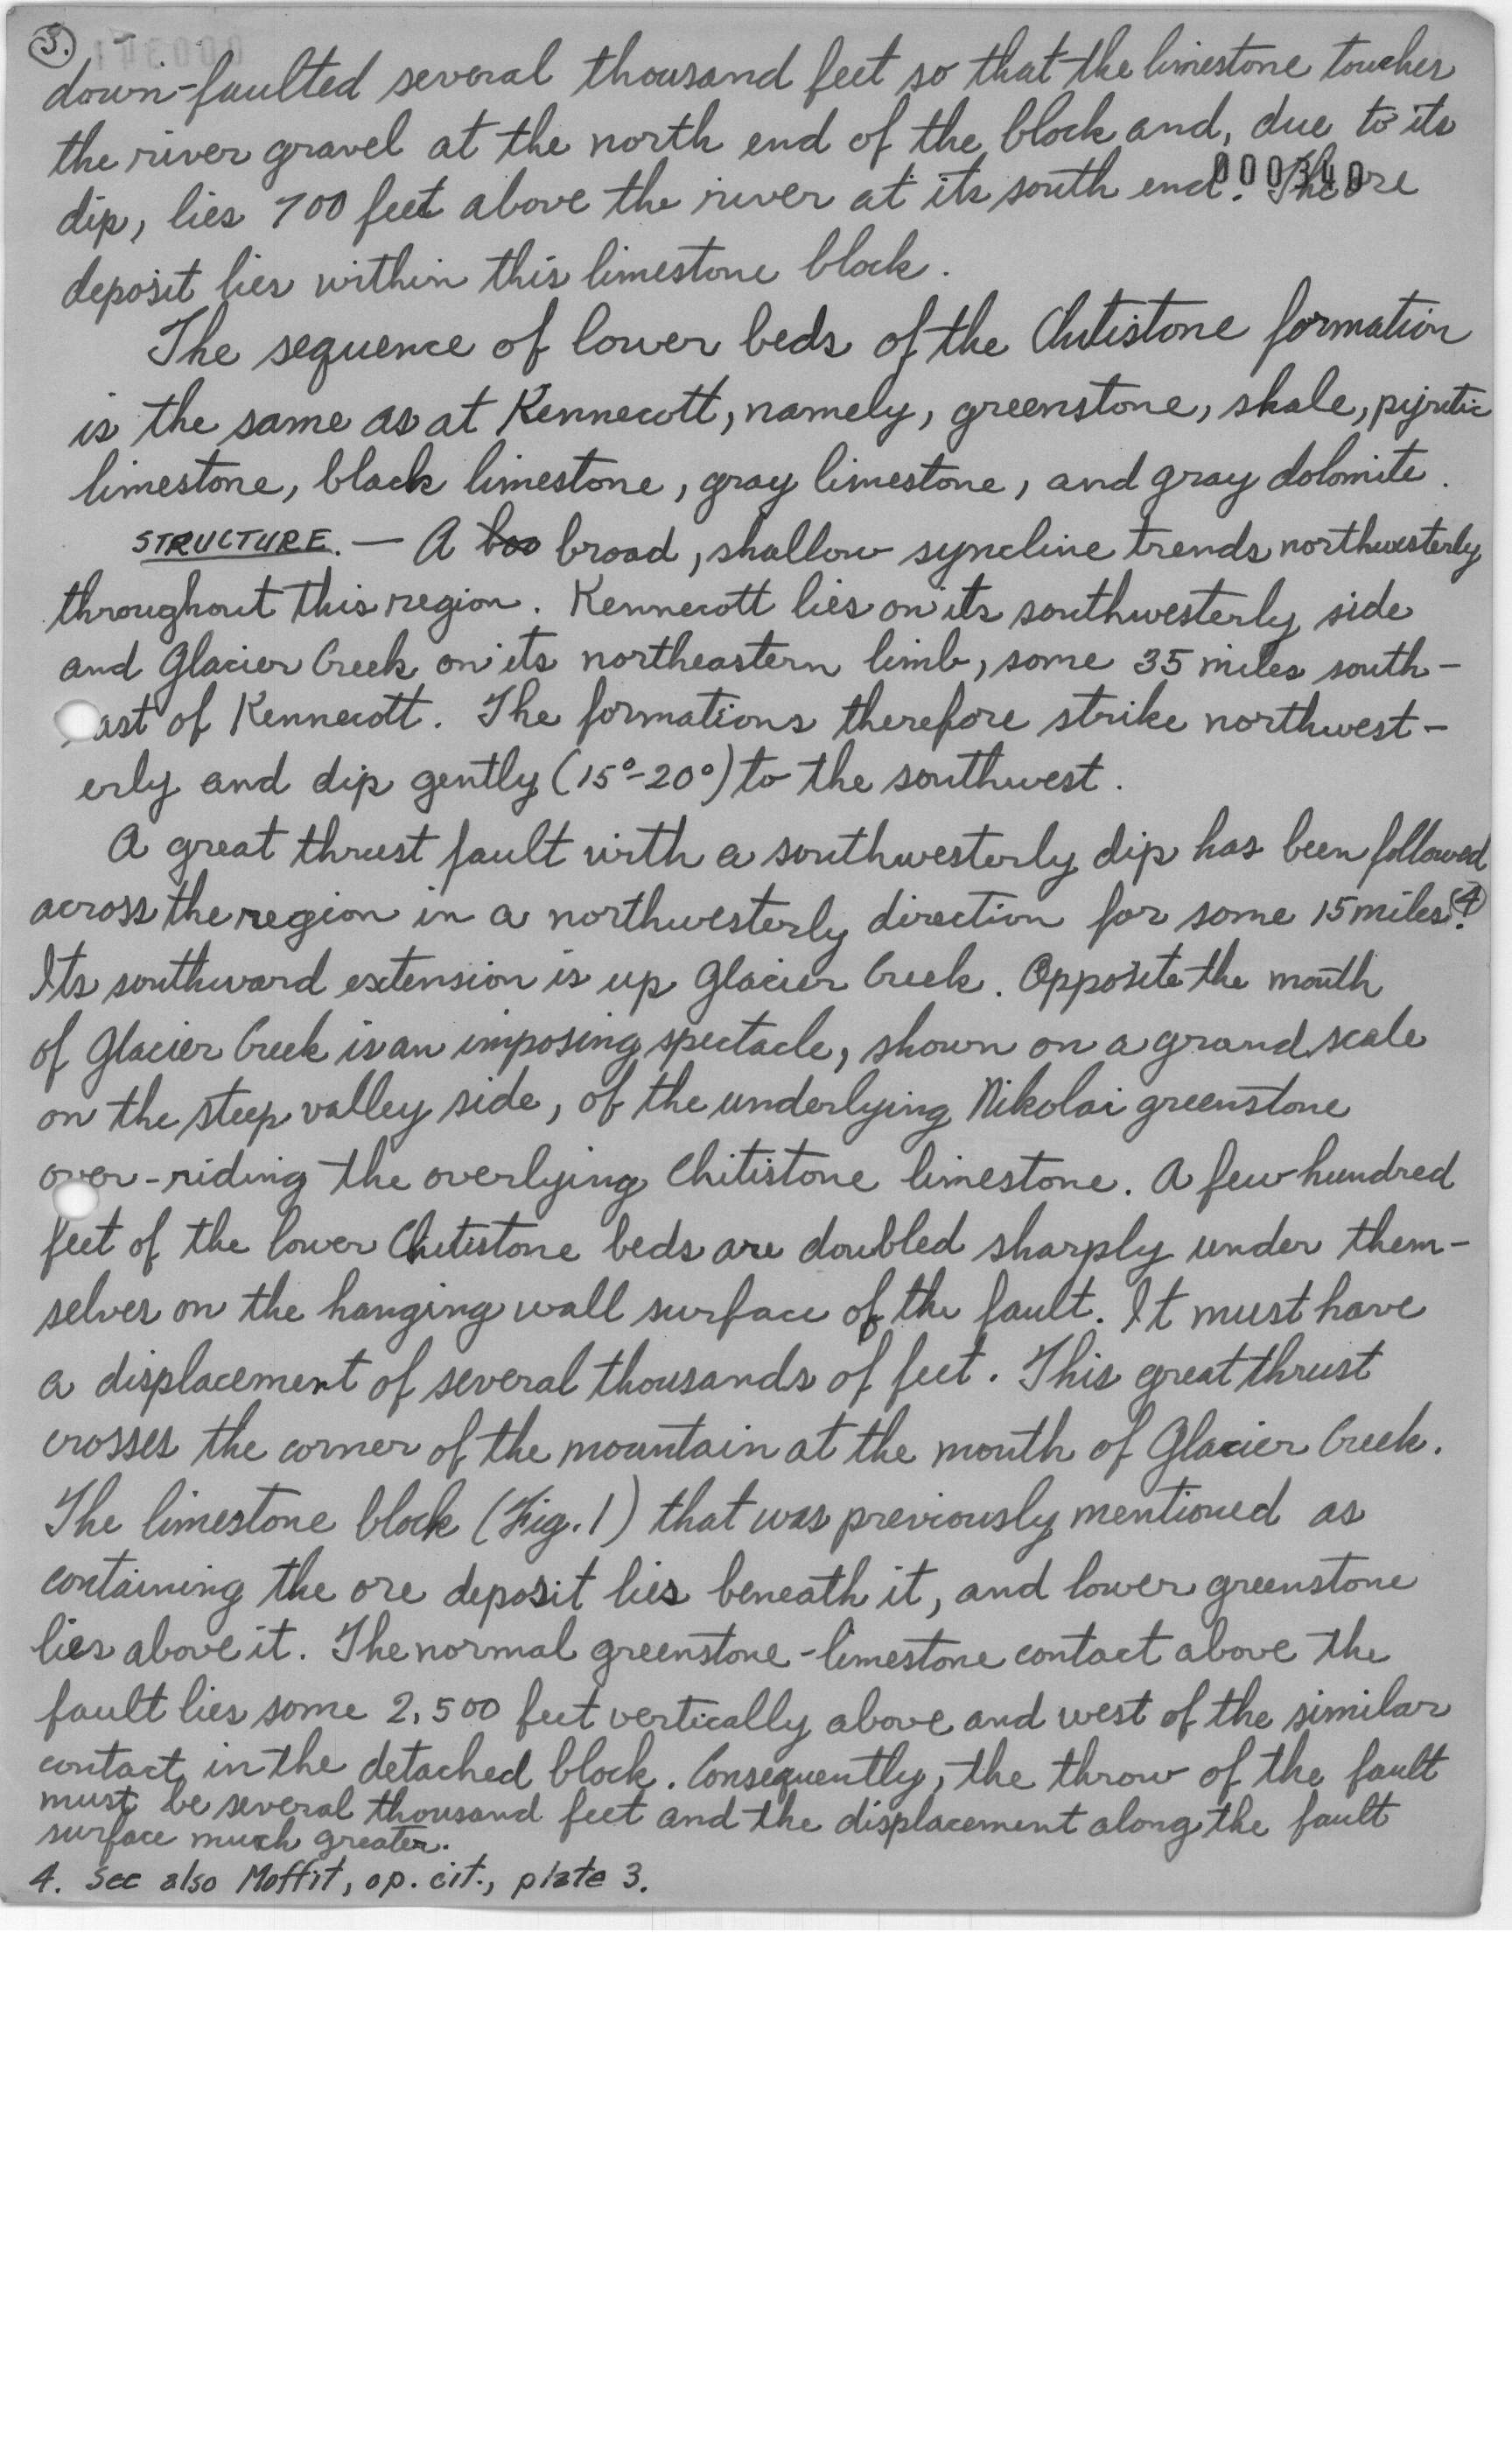 3.
down-faulted several thousand feet so that the limestone touches
the river gravel at the north end of the block and, due to its
000340
dip, lies 700 feet above the river at its south end. The ore
deposit lies within this limestone block.
The sequence of lower beds of the Chitistone formation
is the same as at Kennecott, namely, greenstone, shale, pyritic
limestone, black limestone, gray limestone, and gray dolomite.
STRUCTURE. — A broad, shallow syncline trends northwesterly
throughout this region. Kennecott lies on its southwesterly side
and Glacier Creek on its northeastern limb, some 35 miles south-
ast of Kennecott. The formations therefore strike northwest-
erly and dip gently (15°-20°) to the southwest.
A great thrust fault with a southwesterly dip has been followed
across the region in a northwesterly direction for some 15 miles. 4
Its southward extension is up Glacier Creek. Opposite the mouth
of Glacier Creek is an imposing spectacle, shown on a grand scale
on the steep valley side, of the underlying Nikolai greenstone
over-riding the overlying Chitistone limestone. A few hundred
feet of the lower Chitistone beds are doubled sharply under them-
selves on the hanging wall surface of the fault. It must have
a displacement of several thousands of feet. This great thrust
crosses the corner of the mountain at the mouth of Glacier Creek.
The limestone block (Fig. 1) that was previously mentioned as
containing the ore deposit lies beneath it, and lower greenstone
lies above it. The normal greenstone-limestone contact above the
fault lies some 2,500 feet vertically above and west of the similar
contact in the detached block. Consequently, the throw of the fault
must be several thousand feet and the displacement along the fault
surface much greater.
4. See also Moffit, op. cit., plate 3.